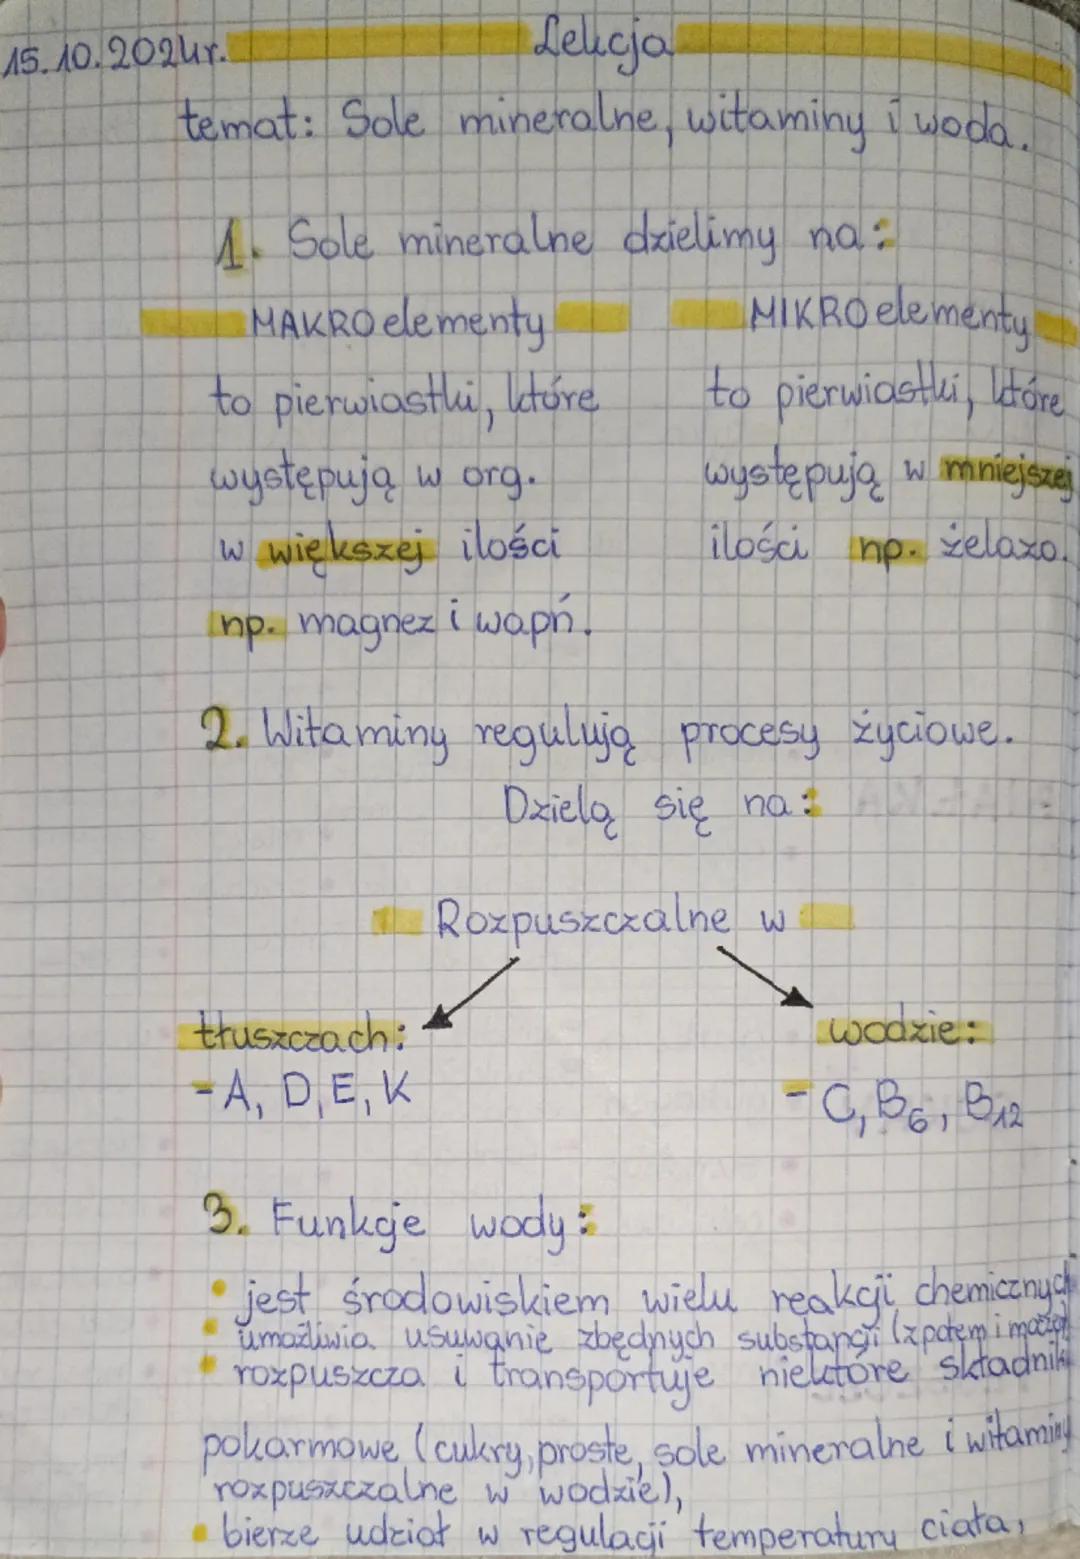 15.10.2024r. Lekcja
temat: Sole mineralne, witaminy i woda.
1. Sole mineralne dzielimy na:
MAKROelementy
to pierwiastki, które
występują w org.
w większej ilości
np. magnez i wapń.
MIKROelementy
to pierwiastki, które
występują w mniejszej
ilości np. żelazo.
2. Witaminy regulują procesy życiowe.
Dzielą się na:
Rozpuszczalne w
tłuszczach:
- A, D, E, K
wodzie:
- C, B6, B12
3. Funkcje wody:
• jest środowiskiem wielu reakcji chemicznych
• umożliwia usuwanie zbędnych substancji (z potem i
• rozpuszcza i transportuje niektóre składniki
pokarmowe (cukry, proste, sole mineralne i witaminy
rozpuszczalne w wodzie),
• bierze udział w regulacji temperatury ciała,